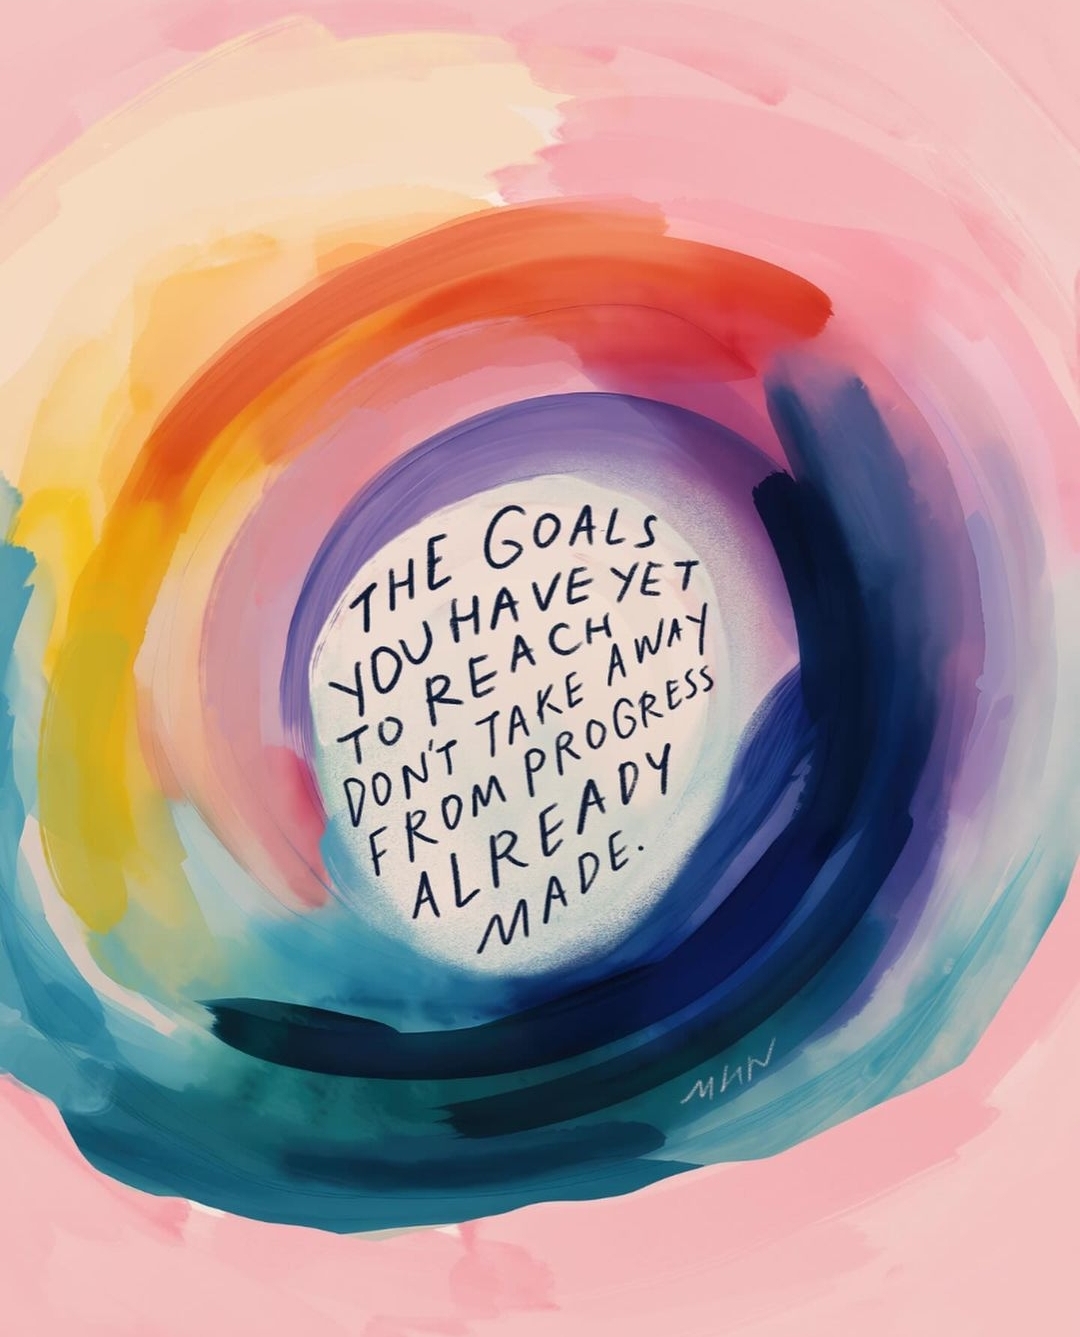 THE GOALS
YOU HAVE YET
TO REACH
DON'T TAKE AWAY
FROM PROGRESS
ALREADY
MADE.
MHN